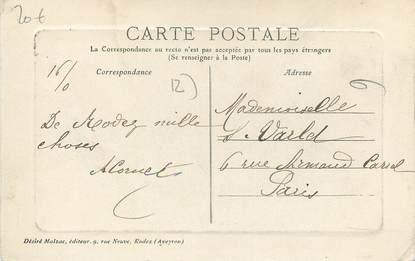 20€
CARTE POSTALE
La Correspondance au recto n'est pas acceptée par tous les pays étrangers
(Se renseigner à la Poste)
Correspondance
Adresse
12
De Rodez mille
choses
A Cornet
Mademoiselle
S. Varld
6 rue Armand Carrel
Paris
Désiré Malzac, éditeur, 9, rue Neuve, Rodez (Aveyron)